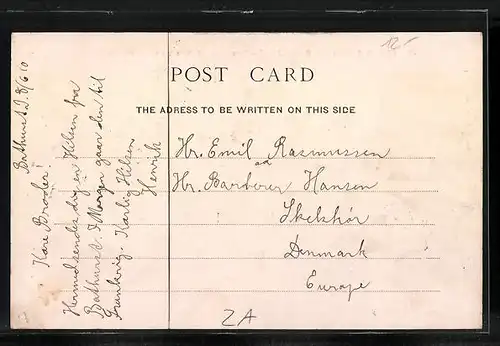 Bathurst d. 8/6 10
Kære Broder.
Hermed sendes dig en Hilsen fra
Bathurst. I Morgen gaar den til
Frankrig. Kærlig Hilsen
Henrik
12-
POST CARD
THE ADRESS TO BE WRITTEN ON THIS SIDE
Hr. Emil Rasmussen
ad
Hr. Barberer Hansen
Skelskør
Denmark
Europe
ZA